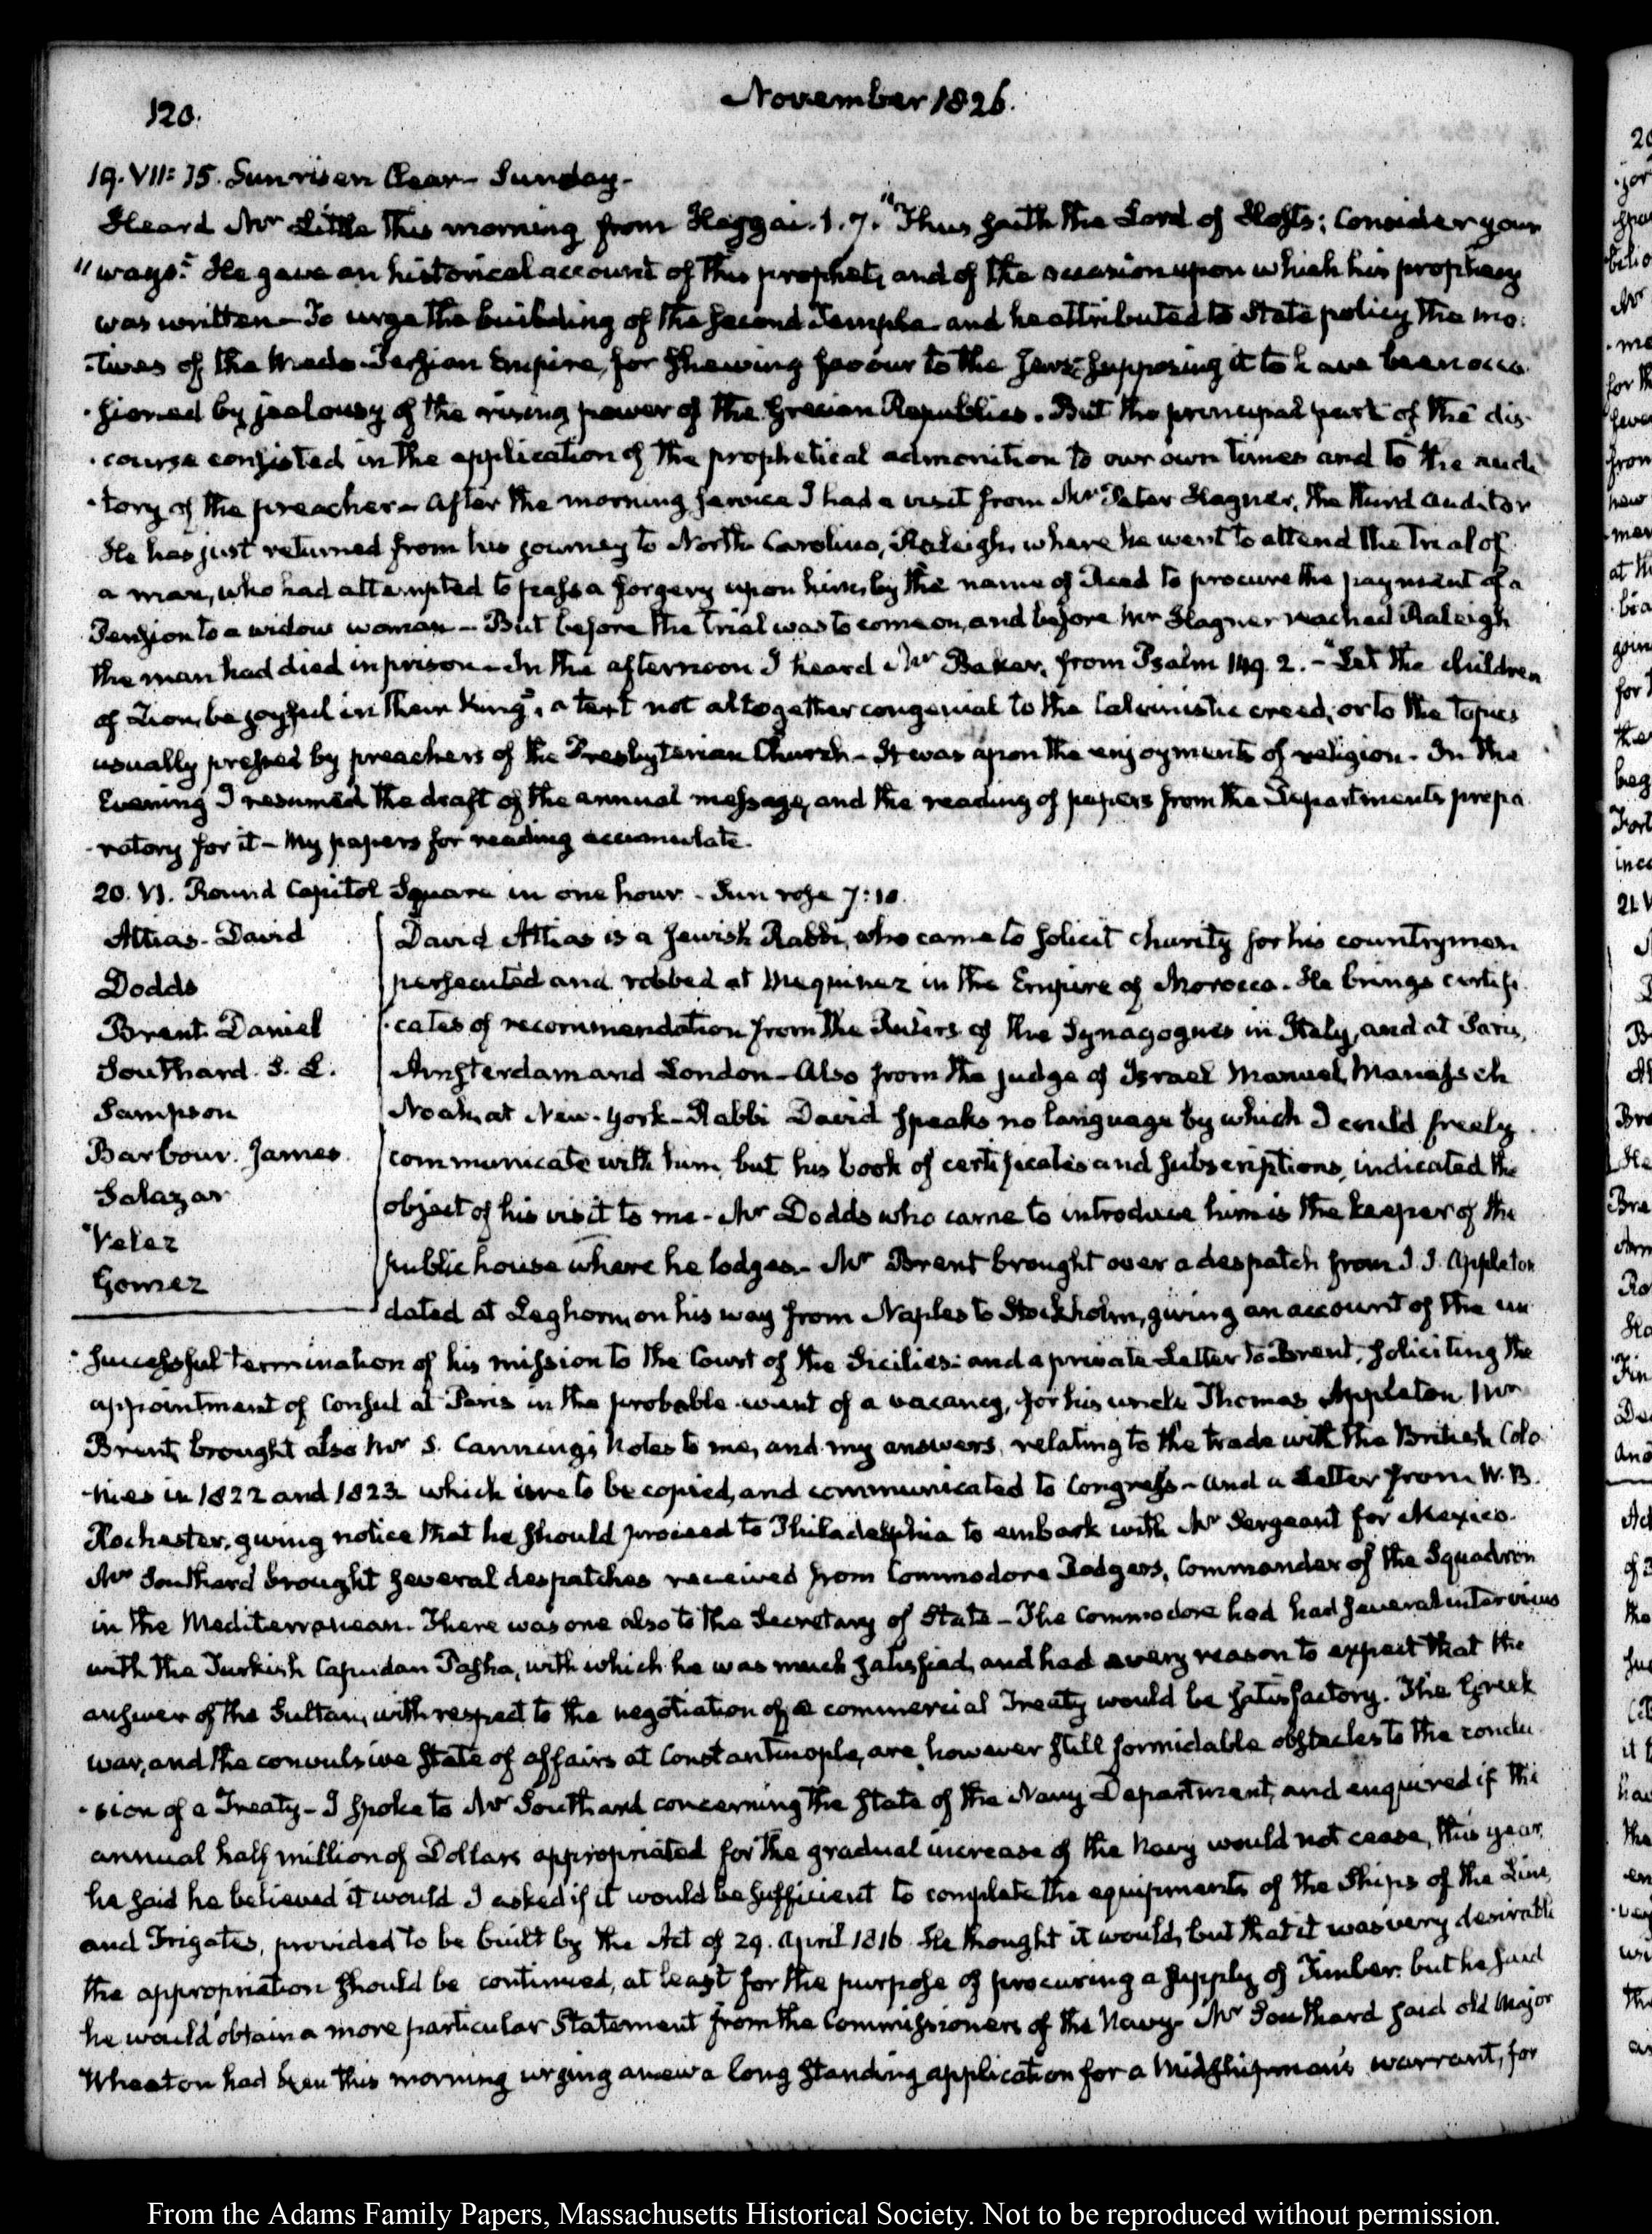 120.
November 1826.
19. VII: 15. Sun risen Clear - Sunday -
Heard Mr Little this morning from Haggai. 1. 7. "Thus saith the Lord of Hosts; Consider your
"ways." He gave an historical account of this prophet, and of the occasion upon which his prophecy
was written - To urge the building of the second Temple - and he attributed to State policy the mo-
-tives of the Medo-Persian Empire, for shewing favour to the Jews; supposing it to have been occa-
-sioned by jealousy of the rising power of the Grecian Republics. But the principal part of the dis-
-course consisted in the application of the prophetical admonition to our own times and to the audi-
-tory of the preacher - After the morning service I had a visit from Mr Peter Hagner, the third Auditor
He has just returned from his journey to North Carolina, Raleigh, where he went to attend the trial of
a man, who had attempted to pass a forgery upon him, by the name of Reed to procure the payment of a
Pension to a widow woman - But before the trial was to come on, and before Mr Hagner reached Raleigh
the man had died in prison - In the afternoon I heard Mr Baker, from Psalm 149. 2. - "Let the children
of Zion, be joyful in their King", a text not altogether congenial to the Calvinistic creed, or to the topics
usually pressed by preachers of the Presbyterian Church - It was upon the enjoyments of religion. In the
Evening I resumed the draft of the annual message, and the reading of papers from the Departments prepa-
-ratory for it - My papers for reading accumulate.
20. VI. Round Capitol Square in one hour - Sun rose 7:10.
Attias. David
Dodds
Brent. Daniel
Southard. S. L.
Sampson
Barbour. James
Salazar
Velez
Gomez
David Attias is a Jewish Rabbi, who came to solicit charity for his countrymen
persecuted and robbed at Mequinez in the Empire of Morocco. He brings certifi-
-cates of recommendation from the Rulers of the Synagogues in Italy, and at Paris,
Amsterdam and London - Also from the judge of Israel Manuel Manasseh
Noah, at New-York - Rabbi David speaks no language by which I could freely
communicate with him, but his book of certificates and subscriptions, indicated the
object of his visit to me - Mr Dodds who came to introduce him is the keeper of the
public house where he lodges - Mr Brent brought over a despatch from J. J. Appleton
dated at Leghorn, on his way from Naples to Stockholm, giving an account of the un
-successful termination of his mission to the Court of the Sicilies: and a private Letter to Brent, soliciting the
appointment of Consul at Paris in the probable event of a vacancy, for his uncle Thomas Appleton Mr
Brent, brought also Mr S. Canning's Notes to me, and my answers, relating to the trade with the British Colo-
-nies in 1822 and 1823 which are to be copied, and communicated to Congress - and a Letter from W. B.
Rochester, giving notice that he should proceed to Philadelphia to embark with Mr Sergeant for Mexico.
Mr Southard brought several despatches received from Commodore Rodgers, Commander of the Squadron
in the Mediterranean. There was one also to the Secretary of State - The Commodore had had several interviews
with the Turkish Capudan Pasha, with which he was much satisfied, and had every reason to expect that the
answer of the Sultan, with respect to the negotiation of a commercial Treaty would be satisfactory. The Greek
war, and the convulsive state of affairs at Constantinople, are however still formidable obstacles to the conclu-
-sion of a Treaty - I spoke to Mr Southard concerning the state of the Navy Department, and enquired if the
annual half million of Dollars appropriated for the gradual increase of the Navy would not cease, this year,
he said he believed it would I asked if it would be sufficient to complete the equipments of the Ships of the Line,
and Frigates, provided to be built by the Act of 29. April 1816 He thought it would, but that it was very desirable
the appropriation should be continued, at least for the purpose of procuring a supply of Timber: but he said
he would obtain a more particular Statement from the Commissioners of the Navy - Mr Southard said old Major
Wheaton had been this morning urging anew a long standing application for a Midshipman's warrant, for
From the Adams Family Papers, Massachusetts Historical Society. Not to be reproduced without permission.